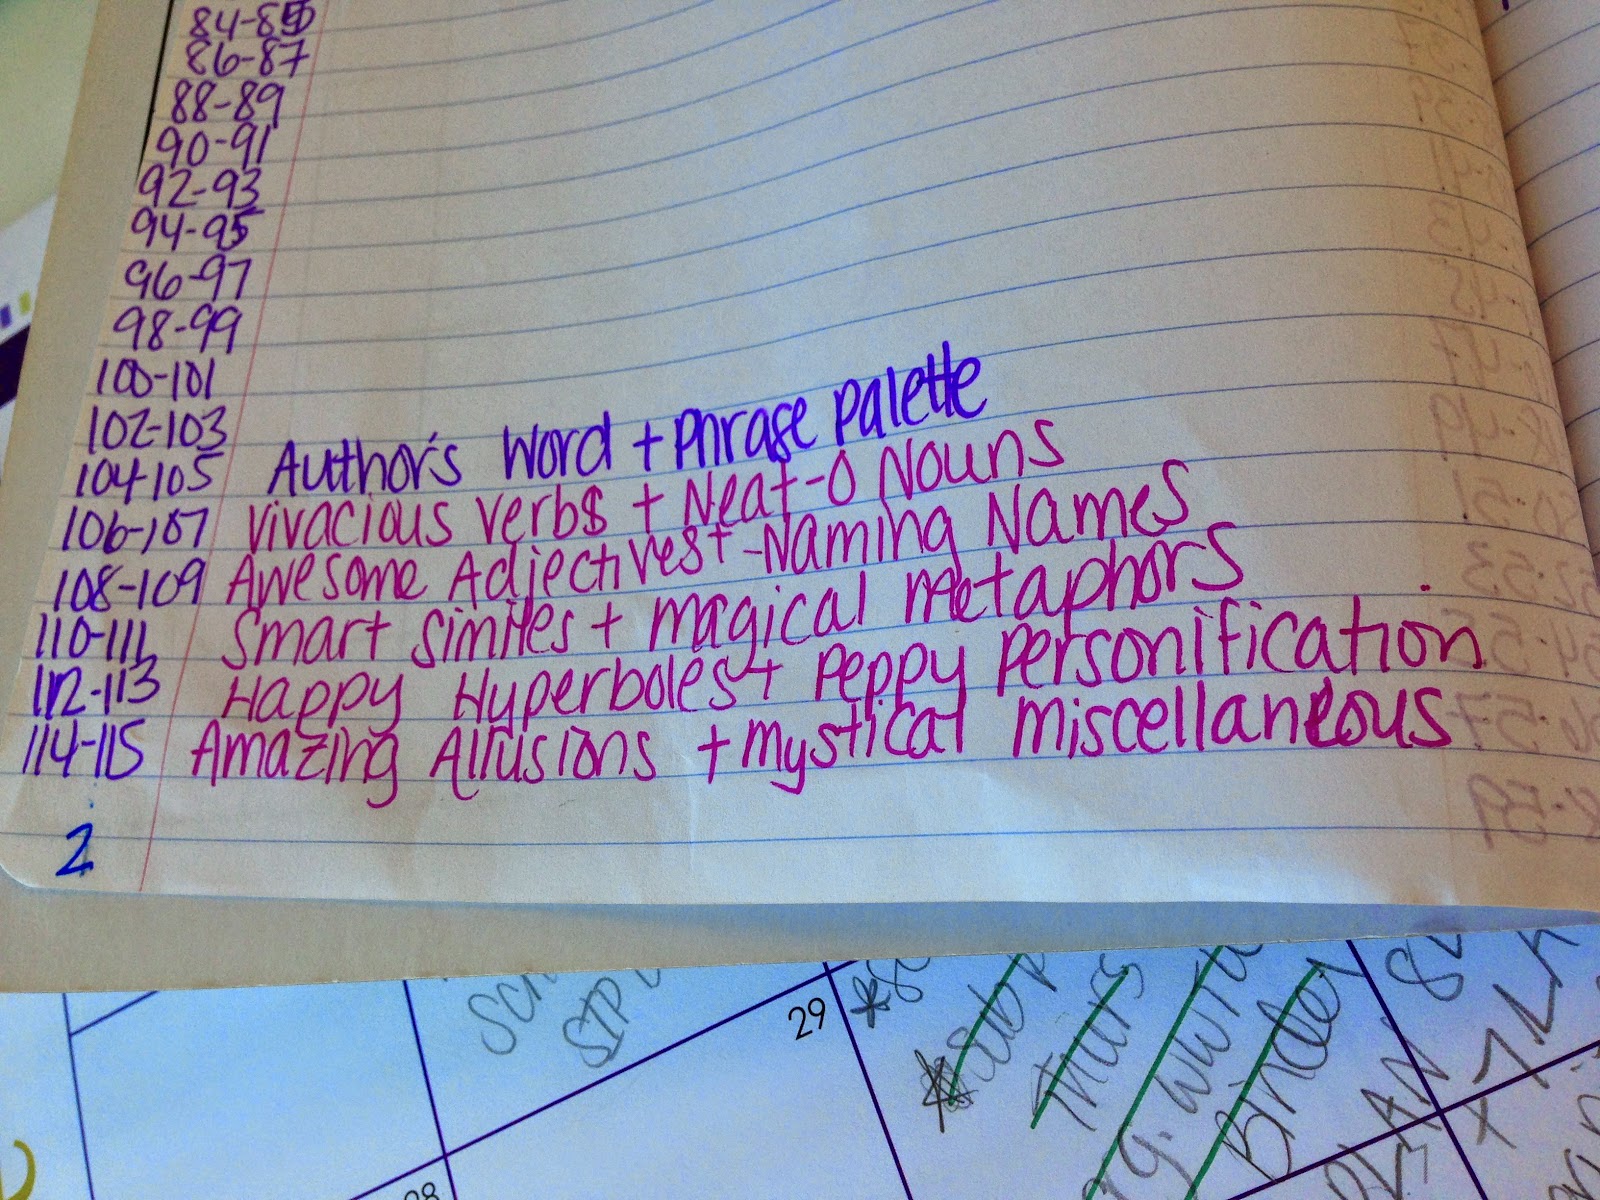 84-85
86-87
88-89
90-91
92-93
94-95
96-97
98-99
100-101
102-103
104-105 Author's Word + Phrase Palette
106-107 Vivacious Verbs + Neat-O Nouns
108-109 Awesome Adjectives + -Naming Names
110-111 Smart Similes + Magical Metaphors
112-113 Happy Hyperboles + Peppy Personification
114-115 Amazing Allusions + Mystical Miscellaneous
2
29
Thurs
Binder
PLAN
28